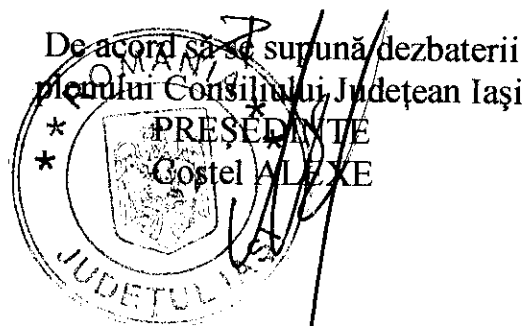 De acord să se supună dezbaterii
plenului Consiliului Județean Iași
PREȘEDINTE
Costel ALEXE
* * ROMÂNIA * *
JUDEȚUL IAȘI